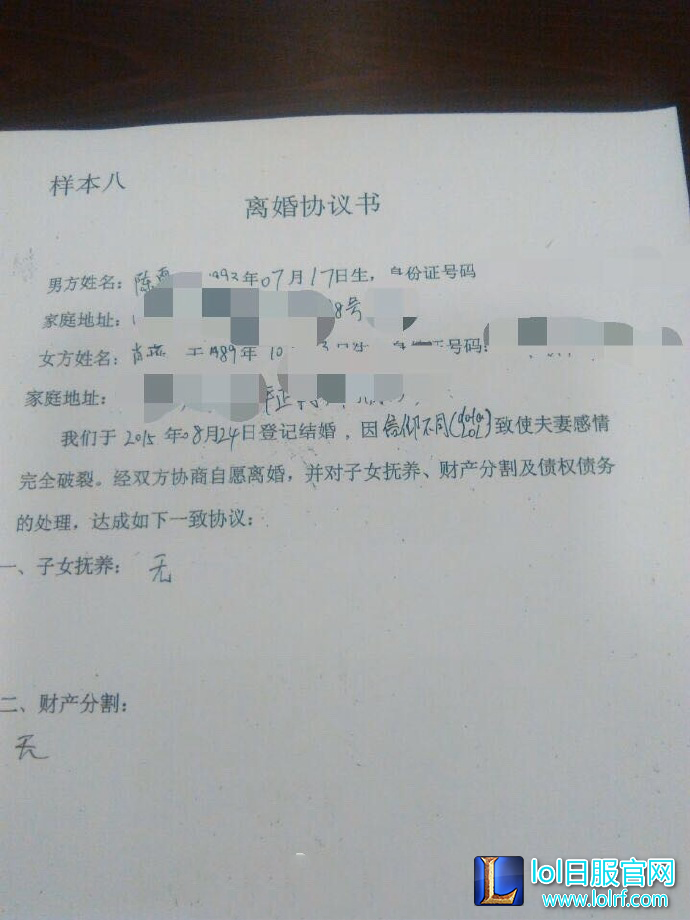 样本八
离婚协议书
男方姓名：陈 年07月17日生，身份证号码
家庭地址： 8号
女方姓名：肖 年10 3日生，身份证号码：
家庭地址：
我们于2015年08月24日登记结婚，因信仰不同(dota LOL)致使夫妻感情
完全破裂。经双方协商自愿离婚，并对子女抚养、财产分割及债权债务
的处理，达成如下一致协议：
一、子女抚养：无
二、财产分割：
无
lol日服官网
www.lolrf.com